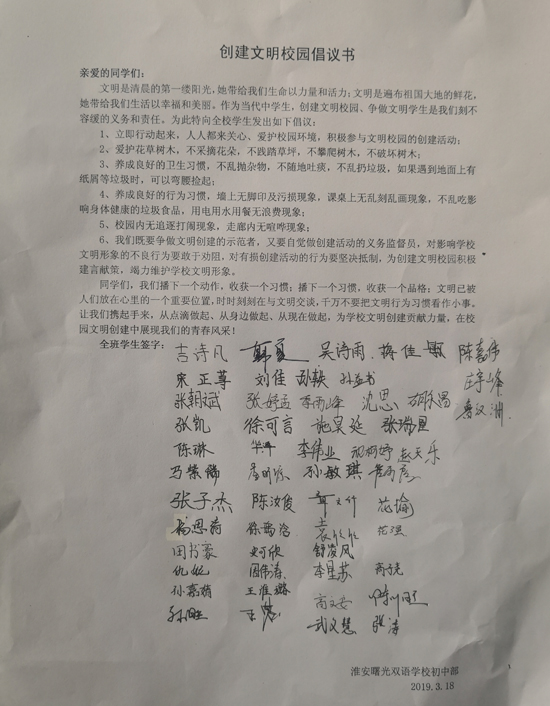 创建文明校园倡议书
亲爱的同学们：
文明是清晨的第一缕阳光，她带给我们生命以力量和活力；文明是遍布祖国大地的鲜花，
她带给我们生活以幸福和美丽。作为当代中学生，创建文明校园、争做文明学生是我们刻不
容缓的义务和责任。为此特向全校学生发出如下倡议：
1、立即行动起来，人人都来关心、爱护校园环境，积极参与文明校园的创建活动；
2、爱护花草树木，不采摘花朵，不践踏草坪，不攀爬树木，不破坏树木；
3、养成良好的卫生习惯，不乱抛杂物，不随地吐痰，不乱扔垃圾，如果遇到地面上有
纸屑等垃圾时，可以弯腰捡起；
4、养成良好的行为习惯，墙上无脚印及污损现象，课桌上无乱刻乱画现象，不乱吃影
响身体健康的垃圾食品，用电用水用餐无浪费现象；
5、校园内无追逐打闹现象，走廊内无喧哗现象；
6、我们既要争做文明创建的示范者，又要自觉做创建活动的义务监督员，对影响学校
文明形象的不良行为要敢于劝阻，对有损创建活动的行为要坚决抵制，为创建文明校园积极
建言献策，竭力维护学校文明形象。
同学们，我们播下一个动作，收获一个习惯；播下一个习惯，收获一个品格；文明已被
人们放在心里的一个重要位置，时时刻刻在与文明交谈，千万不要把文明行为习惯看作小事。
让我们携起手来，从点滴做起、从身边做起、从现在做起，为学校文明创建贡献力量，在校
园文明创建中展现我们的青春风采！
全班学生签字： 吉诗凡 吴诗雨 陈嘉伟
宋正尊 刘佳
张朝斌 李雨峰 沈思
张凯 徐可言 施昊延 张瑞恩
陈琳 李伟业 赵天乐
孙敏琪
张子杰 陈汝俊 范瑜
范强
田书豪 舒凌风
仇 周伟涛 李星苏
孙嘉楠 王维璐
武文慧 张涛
淮安曙光双语学校初中部
2019.3.18